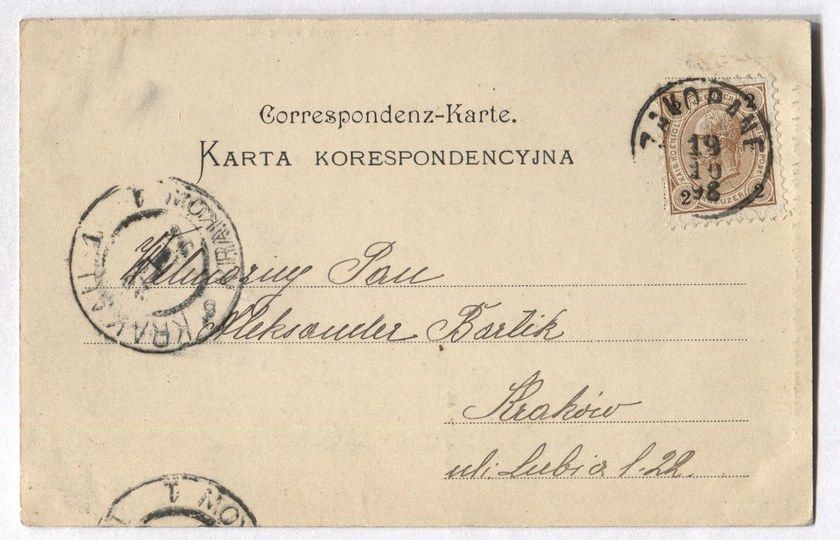 Correspondenz-Karte.
KARTA KORESPONDENCYJNA
ZAKOPANE
19
10
98
2 2
2 2
KREUZER
KRAKAU 1
KRAKOW 1
Wielmożny Pan
Aleksander Bartik
Kraków
ul: Lubicz l. 22.